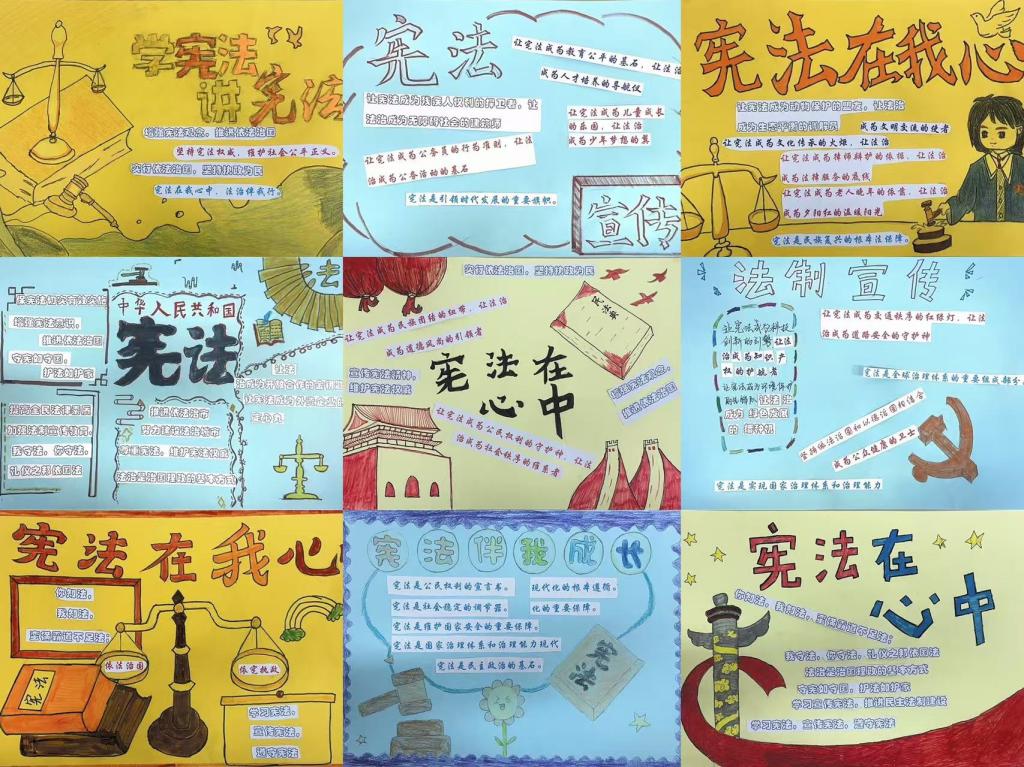 学宪法
讲宪法
增强宪法观念，推进依法治国
坚持宪法权威，维护社会公平正义。
实行依法治国，坚持执政为民
宪法在我心中，法治伴我行。
宪法
让宪法成为教育公平的基石，让法治
成为人才培养的导航仪
让宪法成为残疾人权利的捍卫者，让
法治成为无障碍社会的建筑师
让宪法成为儿童成长
的乐园，让法治
成为少年梦想的翼
让宪法成为公务员的行为准则，让法
治成为公务活动的基石
宪法是引领时代发展的重要旗帜。
宣传
宪法在我心
让宪法成为动物保护的盟友，让法治
成为生态平衡的调解员
成为文明交流的使者
让宪法成为文化传承的火炬，让法治
让宪法成为律师辩护的依据，让法治
成为法律服务的底线
让宪法成为老人晚年的依靠，让法治
成为夕阳红的温暖阳光
宪法是民族复兴的根本法保障。
增强宪法意识，
推进依法治国
守宪如守国，
护法如护家
提高全民法律素质
加强法制宣传教育。
我守法，你守法，
礼仪之邦依国法
中华人民共和国
宪法
推进依法治市
努力建设法治城市
尊重宪法，维护宪法权威
法治是治国理政的基本方式
法
让法
定心丸
实行依法治国，坚持执政为民
让宪法成为民族团结的纽带，让法治
成为道德风尚的引领者
宣传宪法精神，
维护宪法权威
民法典
宪法在
心中
增强宪法观念，
推进依法治国
让宪法成为公民权利的守护神，让法
治成为社会秩序的维系者
法制宣传
让宪法成为科技
创新的引擎，让法
治成为知识产
权的护航者
让宪法成为环境保护
的法治
成为绿色发展
的播种机
让宪法成为交通秩序的红绿灯，让法
治成为道路安全的守护神
宪法是全球治理体系的重要组成部分
坚持依法治国和以德治国相结合
成为公众健康的卫士
宪法是实现国家治理体系和治理能力
宪法在我心
你知法，
我知法，
蛮横霸道不足法；
宪法
依法治国
依宪执政
学习宪法，
宣传宪法，
遵守宪法
宪法伴我成长
宪法是公民权利的宣言书。
现代化的根本遵循。
宪法是社会稳定的调节器。
化的重要保障。
宪法是维护国家安全的重要保障。
宪法是国家治理体系和治理能力现代
宪法是民主政治的基石。
宪法
宪法在
心中
你知法，我知法，蛮横霸道不足法；
我守法，你守法，礼仪之邦依国法
法治是治国理政的基本方式
守宪如守国，护法如护家
学习宣传宪法，推进民主法制建设
学习宪法，宣传宪法，遵守宪法